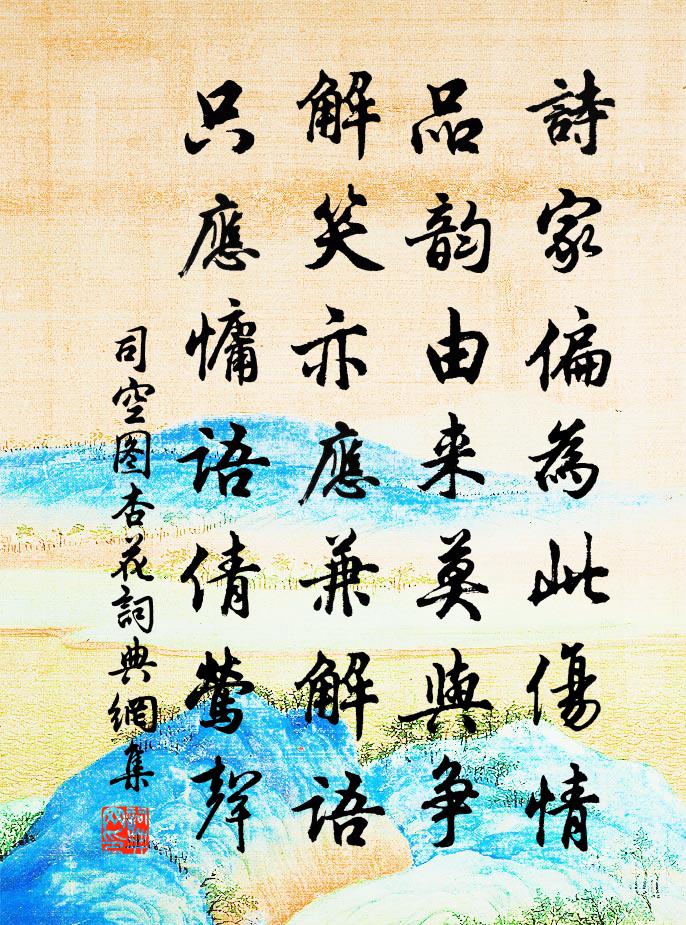 詩家偏為此傷情
品韵由来莫與争
解笑亦應兼解語
只應慵語倩鶯聲
司空图杏花詞典網集